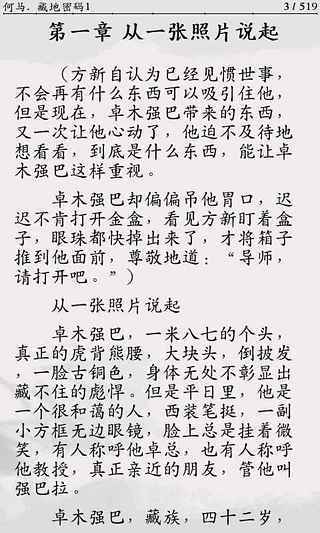 何马．藏地密码1
3 / 519
第一章 从一张照片说起
（方新自认为已经见惯世事，
不会再有什么东西可以吸引住他，
但是现在，卓木强巴带来的东西，
又一次让他心动了，他迫不及待地
想看看，到底是什么东西，能让卓
木强巴这样重视。
卓木强巴却偏偏吊他胃口，迟
迟不肯打开金盒，看见方新盯着盒
子，眼珠都快掉出来了，才将箱子
推到他面前，尊敬地道：“导师，
请打开吧。”）
从一张照片说起
卓木强巴，一米八七的个头，
真正的虎背熊腰，大块头，倒披发
，一脸古铜色，身体无处不彰显出
藏不住的彪悍。但是平日里，他是
一个很和蔼的人，西装笔挺，一副
小方框无边眼镜，脸上总是挂着微
笑，有人称呼他卓总，也有人称呼
他教授，真正亲近的朋友，管他叫
强巴拉。
卓木强巴，藏族，四十二岁，